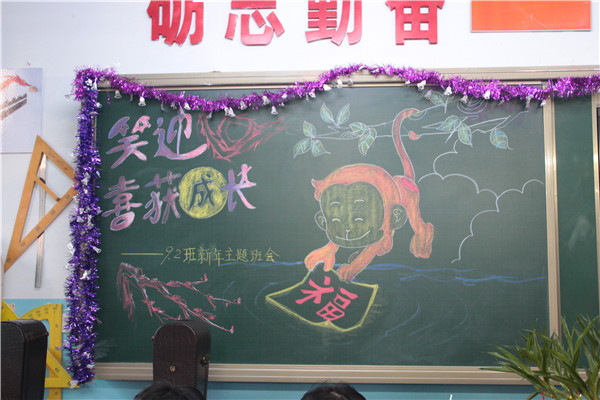 砺志勤奋
笑迎
喜获成长
——9.2班新年主题班会
福